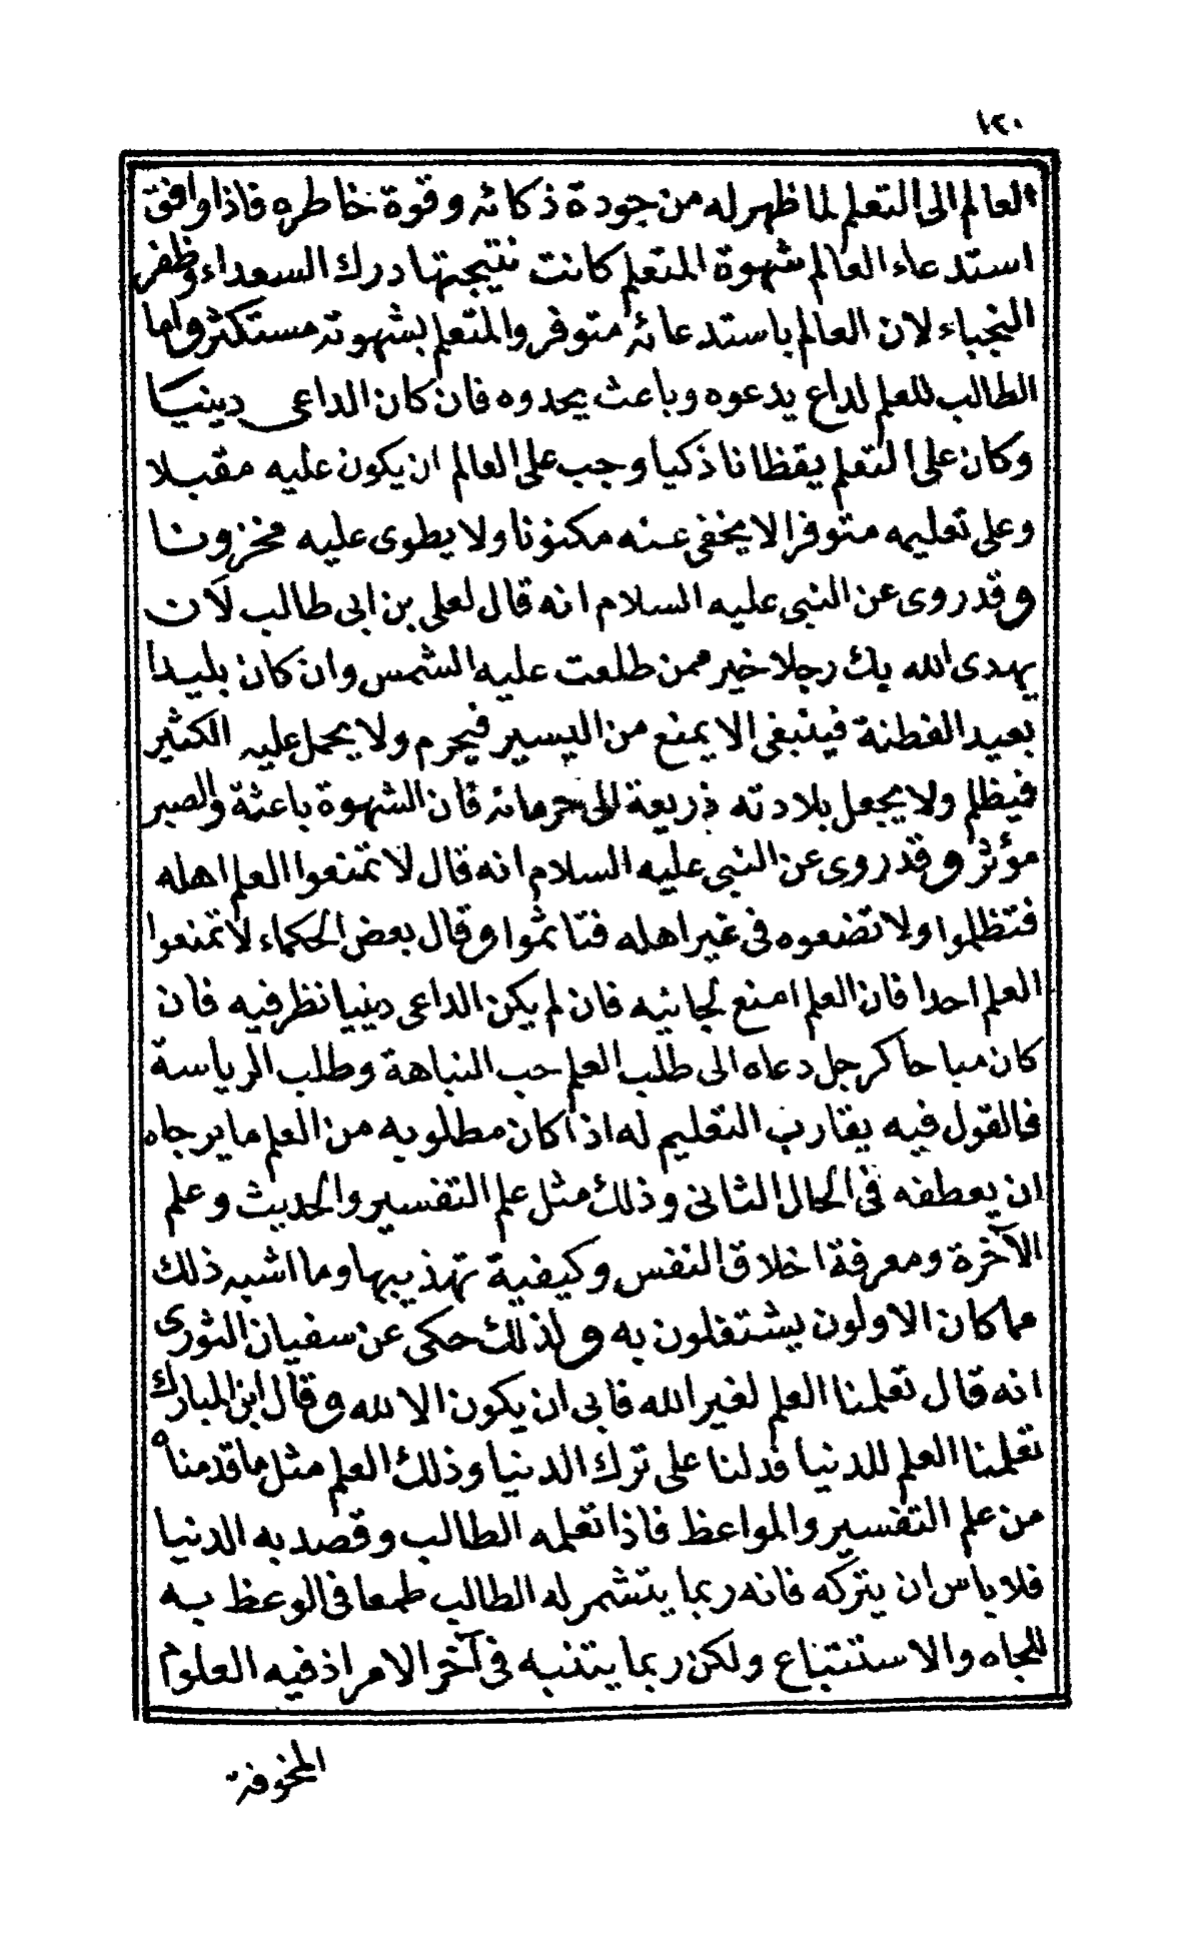 ١٢٠
العالم الى التعلم لما ظهر له من جودة ذكائه وقوة خاطره فاذا وافق
استدعاء العالم شهوة المتعلم كانت نتيجتها درك السعداء وظفر
النجباء لان العالم باستدعائه متوفر والمتعلم بشهوته مستكثر واما
الطالب للعلم لداع يدعوه وباعث يحدوه فان كان الداعى دينيا
وكان على التعلم يقظانا ذكيا وجب على العالم ان يكون عليه مقبلا
وعلى تعليمه متوفرا لا يخفى عنه مكنونا ولا يطوى عليه مخزونا
وقد روى عن النبى عليه السلام انه قال لعلى بن ابى طالب لَان
يهدى الله بك رجلا خير ممن طلعت عليه الشمس وان كان بليدا
بعيد الفطنة فينبغى الا يمنع من اليسير فيحرم ولا يحمل عليه الكثير
فيظلم ولا يجعل بلادته ذريعة الى حرمانه فان الشهوة باعثة والصبر
مؤثر وقد روى عن النبى عليه السلام انه قال لا تمنعوا العلم اهله
فتظلموا ولا تضعوه فى غير اهله فتاثموا وقال بعض الحكماء لا تمنعوا
العلم احدا فان العلم امنع لجانبه فان لم يكن الداعى دينيا نظر فيه فان
كان مباحا كرجل دعاه الى طلب العلم حب النباهة وطلب الرياسة
فالقول فيه يقارب التعليم له اذا كان مطلوبه من العلم ما يرجاه
ان يعطفه فى الحال الثانى وذلك مثل علم التفسير والحديث وعلم
الآخرة ومعرفة اخلاق النفس وكيفية تهذيبها وما اشبه ذلك
مما كان الاولون يشتغلون به ولذلك حكى عن سفيان الثورى
انه قال تعلمنا العلم لغير الله فابى ان يكون الا لله وقال ابن المبارك
تعلمنا العلم للدنيا فدلنا على ترك الدنيا وذلك العلم مثل ما قدمناه
من علم التفسير والمواعظ فاذا تعلمه الطالب وقصد به الدنيا
فلا باس ان يتركه فانه ربما يتشمر له الطالب طمعا فى الوعظ به
للجاه والاستتباع ولكن ربما يتنبه فى آخر الامر اذ فيه العلوم
المخوفة